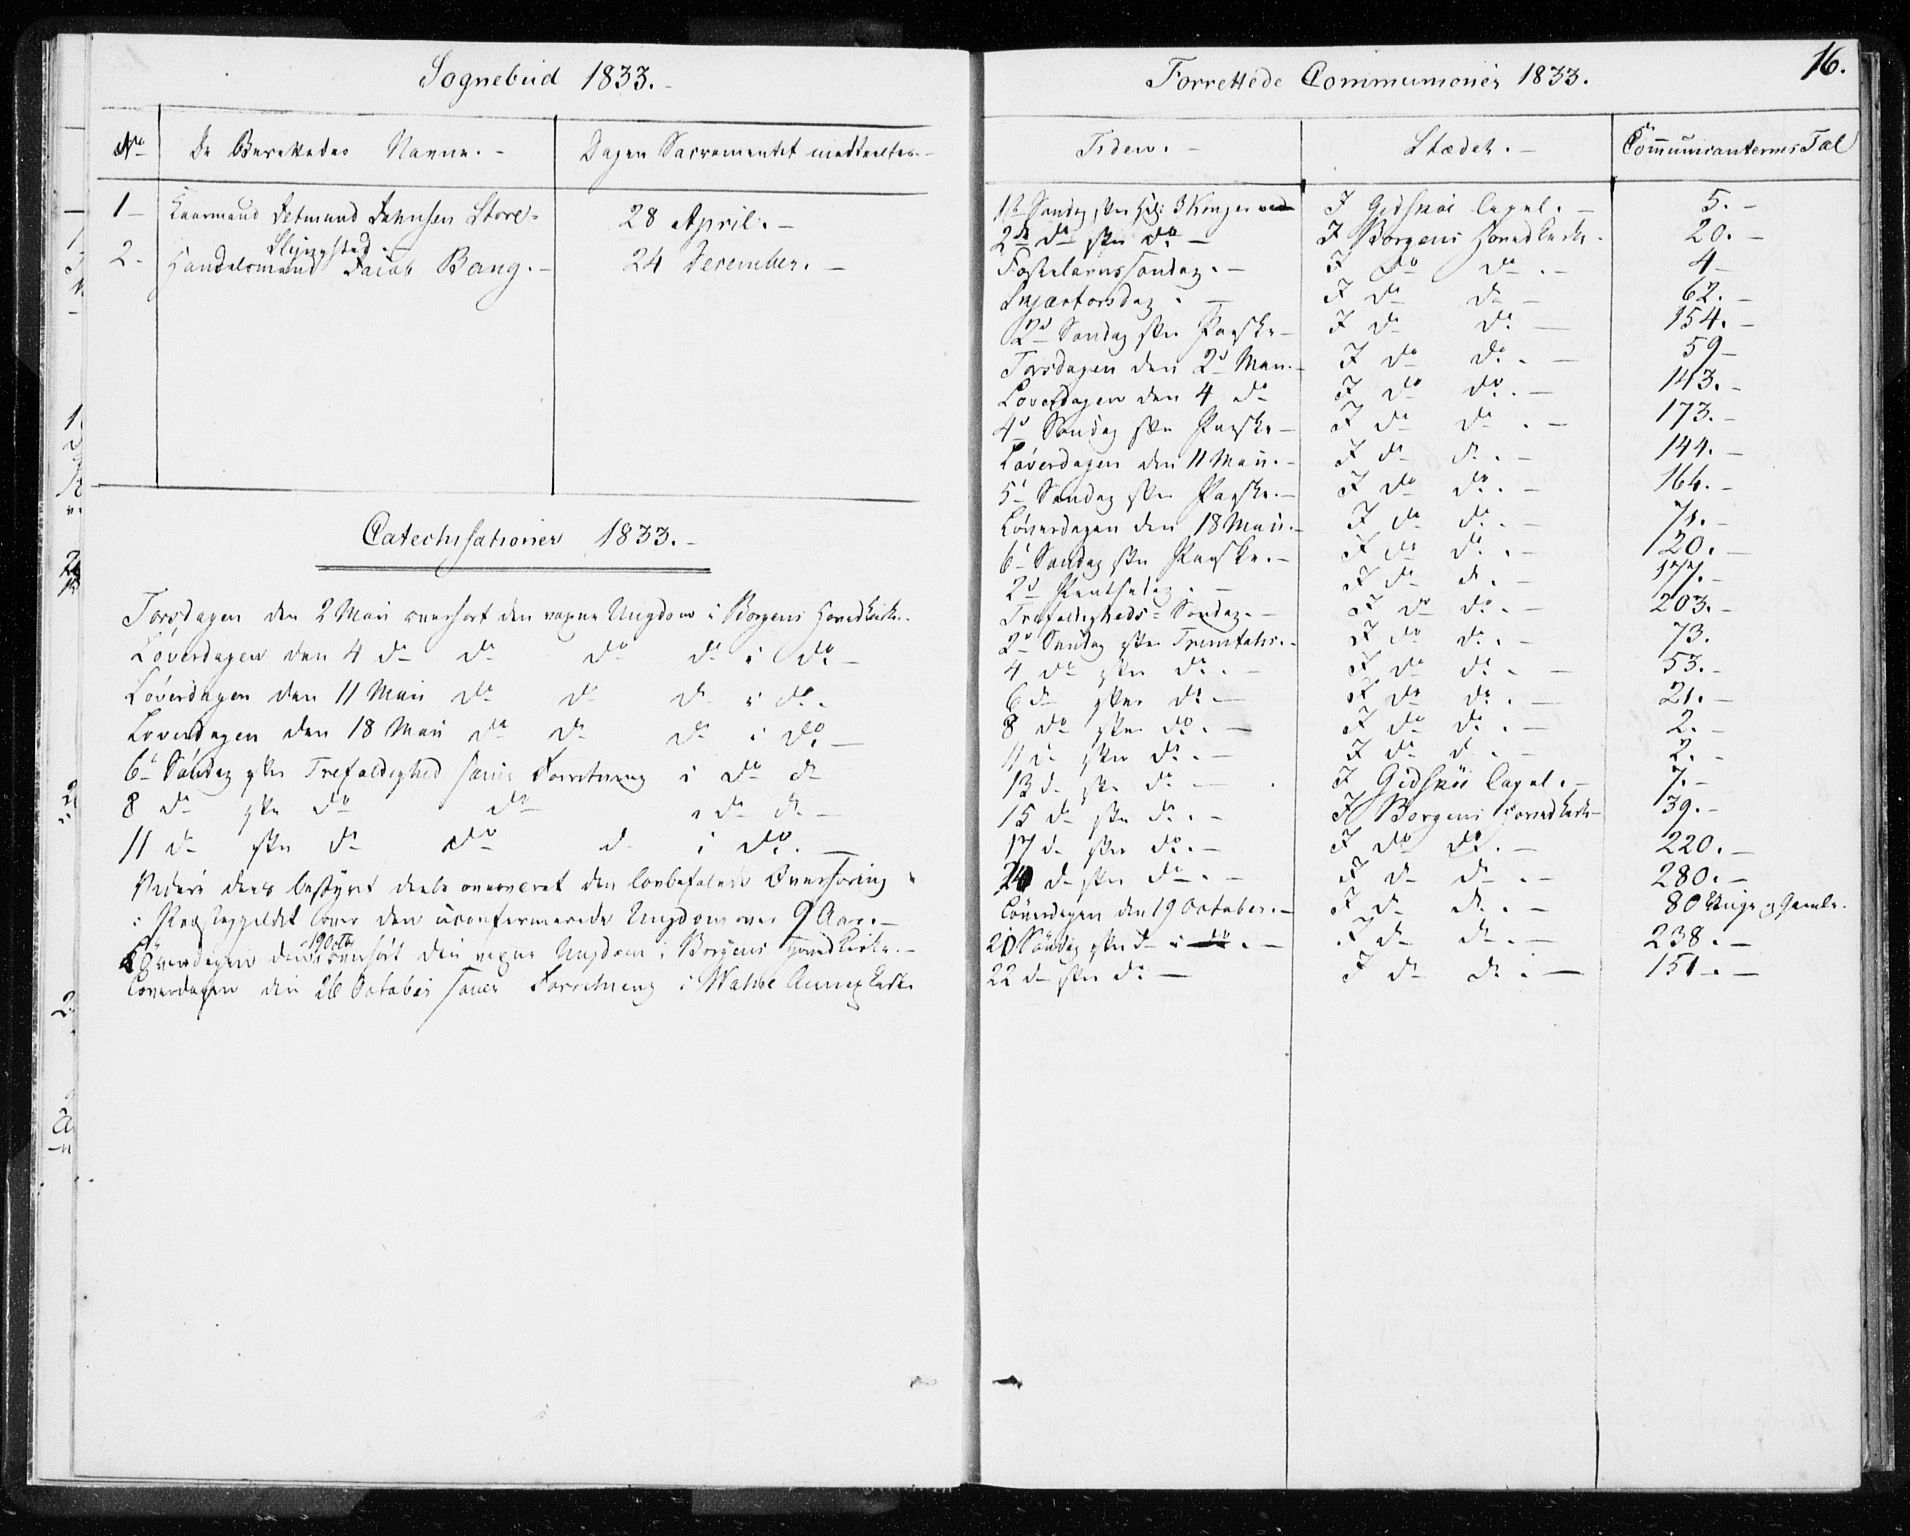 Sognebud 1833.
No De Berettedes Navne. Dagen Sacramentet meddeeltes.
1 Kaarmand Detmand Johnsen Store-
Slyngstad.
28 April.
2. Handelsmand Jacob Bang. 24 December.
Catechisationer 1833.
Torsdagen den 2 Mai overhørt den voxne Ungdom i Borgens Hovedkirke.
Løverdagen den 4 do do do do i do
Løverdagen den 11 Maii do do do i do.
Løverdagen den 18 Maii do do do i do
6te Søndag efter Trefoldighed samme Forretning i do do
8 do efter do do i do do
11 do efter do do do i do.
den lovbefalede Overhøring
i Præstegjeldet over den uconfirmerede Ungdom over 9 Aar.
Løverdagen den 19 Octbr overhørt den voxne Ungdom i Borgens Hovedkirke.
Løverdagen den 26 October samme Forretning i Annexkirke
16.
Forrettede Communioner 1833.
Tiden. Stædet. Communicanternes Tal
1te Søndag efter Hel. 3 Konger I Gidsköe Capel. 5.
2de do efter do I Borgens Hovedkirke. 20.
Fastelavnssøndag. I do do. 4
Skjærtorsdag. I do do 62.
2d Søndag efter Paaske I do do. 154.
Torsdagen den 2d Maii. I do do. 59
Løverdagen den 4 do I do do. 143.
4d Søndag efter Paaske I do do. 173.
Løverdagen den 11 Maii. I do do. 144.
5t Søndag efter Paaske. I do do. 164.
Løverdagen den 18 Maii. I do do. 71.
6t Søndag efter Paaske. I do do. 120.
2d Pintsedag. I do do. 177.
Trefoldigheds-Søndag. I do do. 203.
2d Søndag efter Trinitatis. I do do. 73.
4 do efter do. I do do. 53.
6 do efter do. I do do. 21.
8 do efter do. I do do. 2.
11 do efter do. I do do. 2.
13 do efter do. I Gidsköe Capel. 7.
15 do efter do. I Borgens Hovedkirke 39.
17 do efter do. I do do. 220.
20 do efter do. I do do. 280.
Løverdagen den 19 October. I do do. 80 Unge og Gamle.
20 Søndag efter do i do. I do do. 238.
22 do efter do I do do. 151.